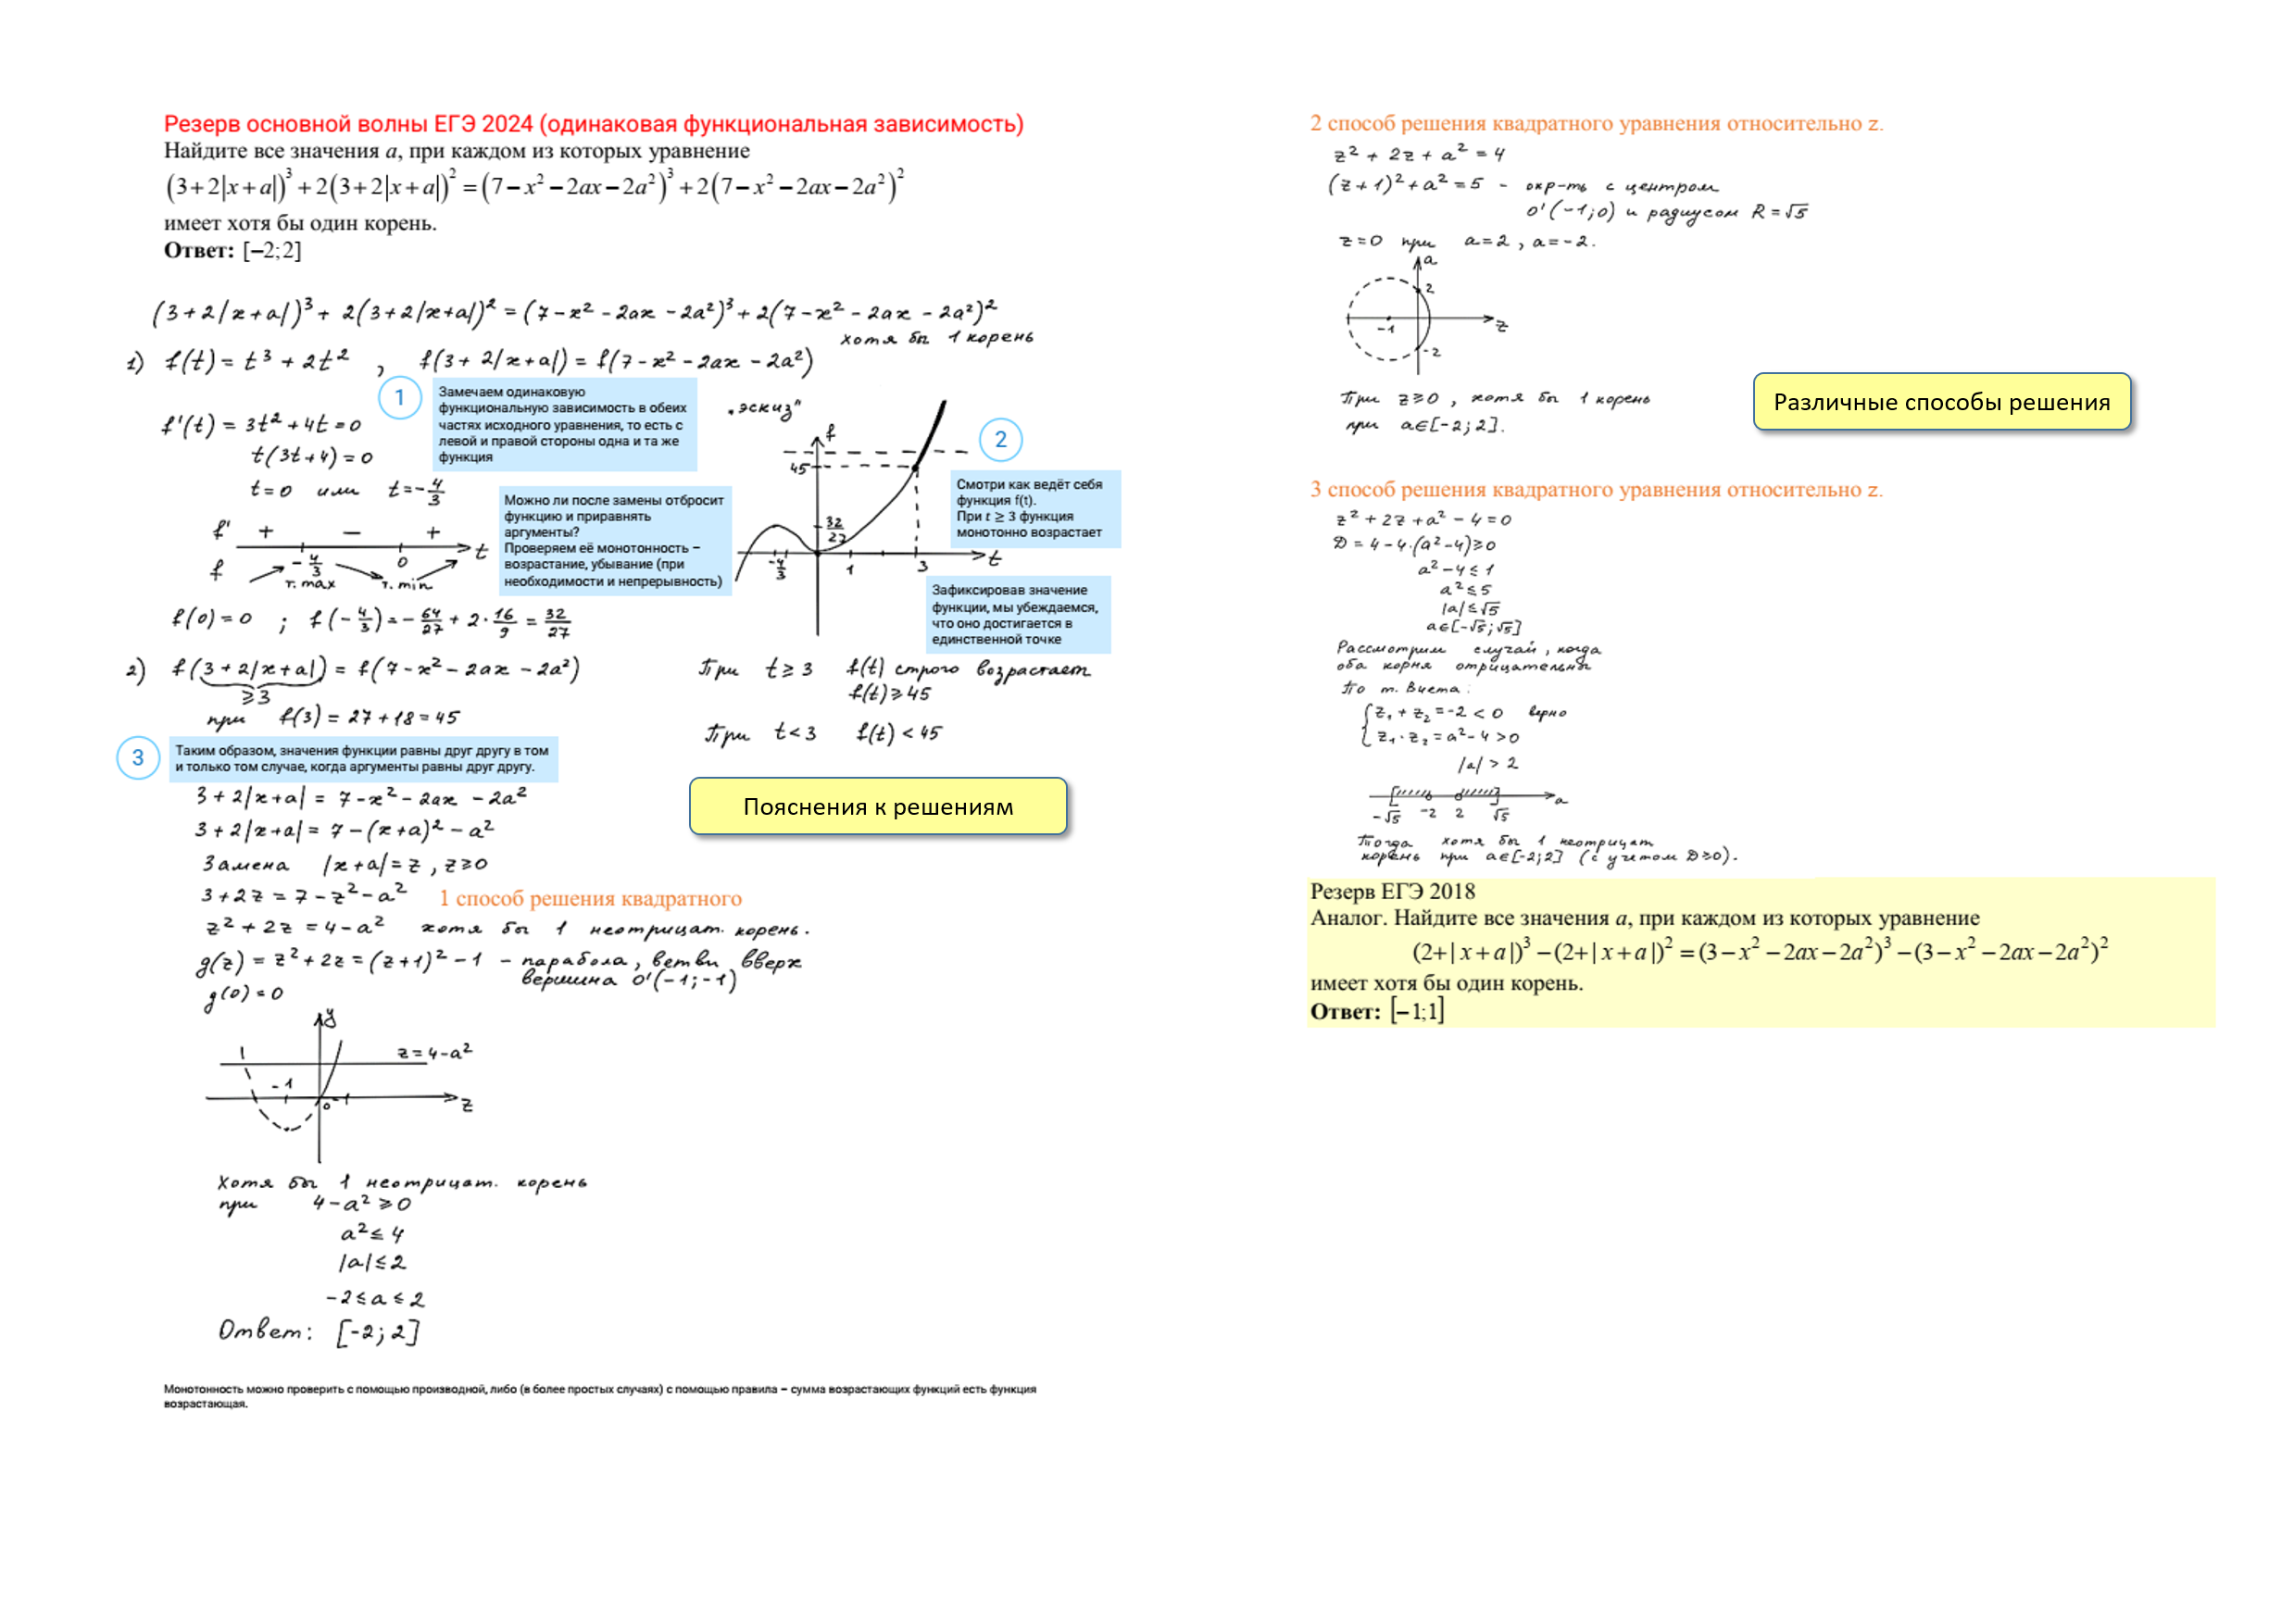 Резерв основной волны ЕГЭ 2024 (одинаковая функциональная зависимость)
Найдите все значения a, при каждом из которых уравнение
(3+2|x+a|)³+2(3+2|x+a|)²=(7−x²−2ax−2a²)³+2(7−x²−2ax−2a²)²
имеет хотя бы один корень.
Ответ: [−2;2]
(3+2|x+a|)³+ 2(3+2|x+a|)² = (7−x² −2ax −2a²)³+2(7−x² −2ax − 2a²)²
хотя бы 1 корень
1) f(t) = t³ + 2t² , f(3+ 2|x+a|) = f(7−x² −2ax −2a²)
1
Замечаем одинаковую
функциональную зависимость в обеих
частях исходного уравнения, то есть с
левой и правой стороны одна и та же
функция
f'(t) = 3t² + 4t = 0
t(3t+4) = 0
t=0 или t=−4/3
f' + − + t
f −4/3 0
т. max т. min
Можно ли после замены отбросит
функцию и приравнять
аргументы?
Проверяем её монотонность –
возрастание, убывание (при
необходимости и непрерывность)
f(0) = 0 ; f(−4/3) = −64/27 + 2·16/9 = 32/27
„эскиз"
f
45
32/27
−4/3 1 3 t
2
Смотри как ведёт себя
функция f(t).
При t ≥ 3 функция
монотонно возрастает
Зафиксировав значение
функции, мы убеждаемся,
что оно достигается в
единственной точке
2) f(3 + 2|x+a|) = f(7−x² − 2ax − 2a²)
≥3
при f(3) = 27+18 = 45
При t ≥ 3 f(t) строго возрастает
f(t) ≥ 45
При t < 3 f(t) < 45
3
Таким образом, значения функции равны друг другу в том
и только том случае, когда аргументы равны друг другу.
Пояснения к решениям
3+2|x+a| = 7−x² − 2ax − 2a²
3+2|x+a| = 7 − (x+a)² − a²
Замена |x+a| = z , z≥0
3+2z = 7−z²−a²
1 способ решения квадратного
z² + 2z = 4−a² хотя бы 1 неотрицат. корень.
g(z) = z² + 2z = (z+1)² −1 − парабола, ветви вверх
вершина O'(−1;−1)
g(0) = 0
y
z = 4−a²
−1 0 1 z
Хотя бы 1 неотрицат. корень
при 4−a² ≥ 0
a² ≤ 4
|a| ≤ 2
−2 ≤ a ≤ 2
Ответ: [−2; 2]
Монотонность можно проверить с помощью производной, либо (в более простых случаях) с помощью правила – сумма возрастающих функций есть функция
возрастающая.
2 способ решения квадратного уравнения относительно z.
z² + 2z + a² = 4
(z+1)² + a² = 5 − окр-ть с центром
O'(−1;0) и радиусом R = √5
z=0 при a=2 , a=−2.
a
2
−1 z
−2
При z≥0 , хотя бы 1 корень
при a∈[−2;2].
Различные способы решения
3 способ решения квадратного уравнения относительно z.
z² + 2z + a² − 4 = 0
D = 4 − 4·(a²−4) ≥ 0
a² − 4 ≤ 1
a² ≤ 5
|a| ≤ √5
a∈[−√5;√5]
Рассмотрим случай, когда
оба корня отрицательны
По т. Виета:
{ z₁ + z₂ = −2 < 0 верно
z₁ · z₂ = a² − 4 > 0
|a| > 2
−√5 −2 2 √5 a
Тогда хотя бы 1 неотрицат
корень при a∈[−2;2] (с учетом D≥0).
Резерв ЕГЭ 2018
Аналог. Найдите все значения a, при каждом из которых уравнение
(2+|x+a|)³−(2+|x+a|)²=(3−x²−2ax−2a²)³−(3−x²−2ax−2a²)²
имеет хотя бы один корень.
Ответ: [−1;1]